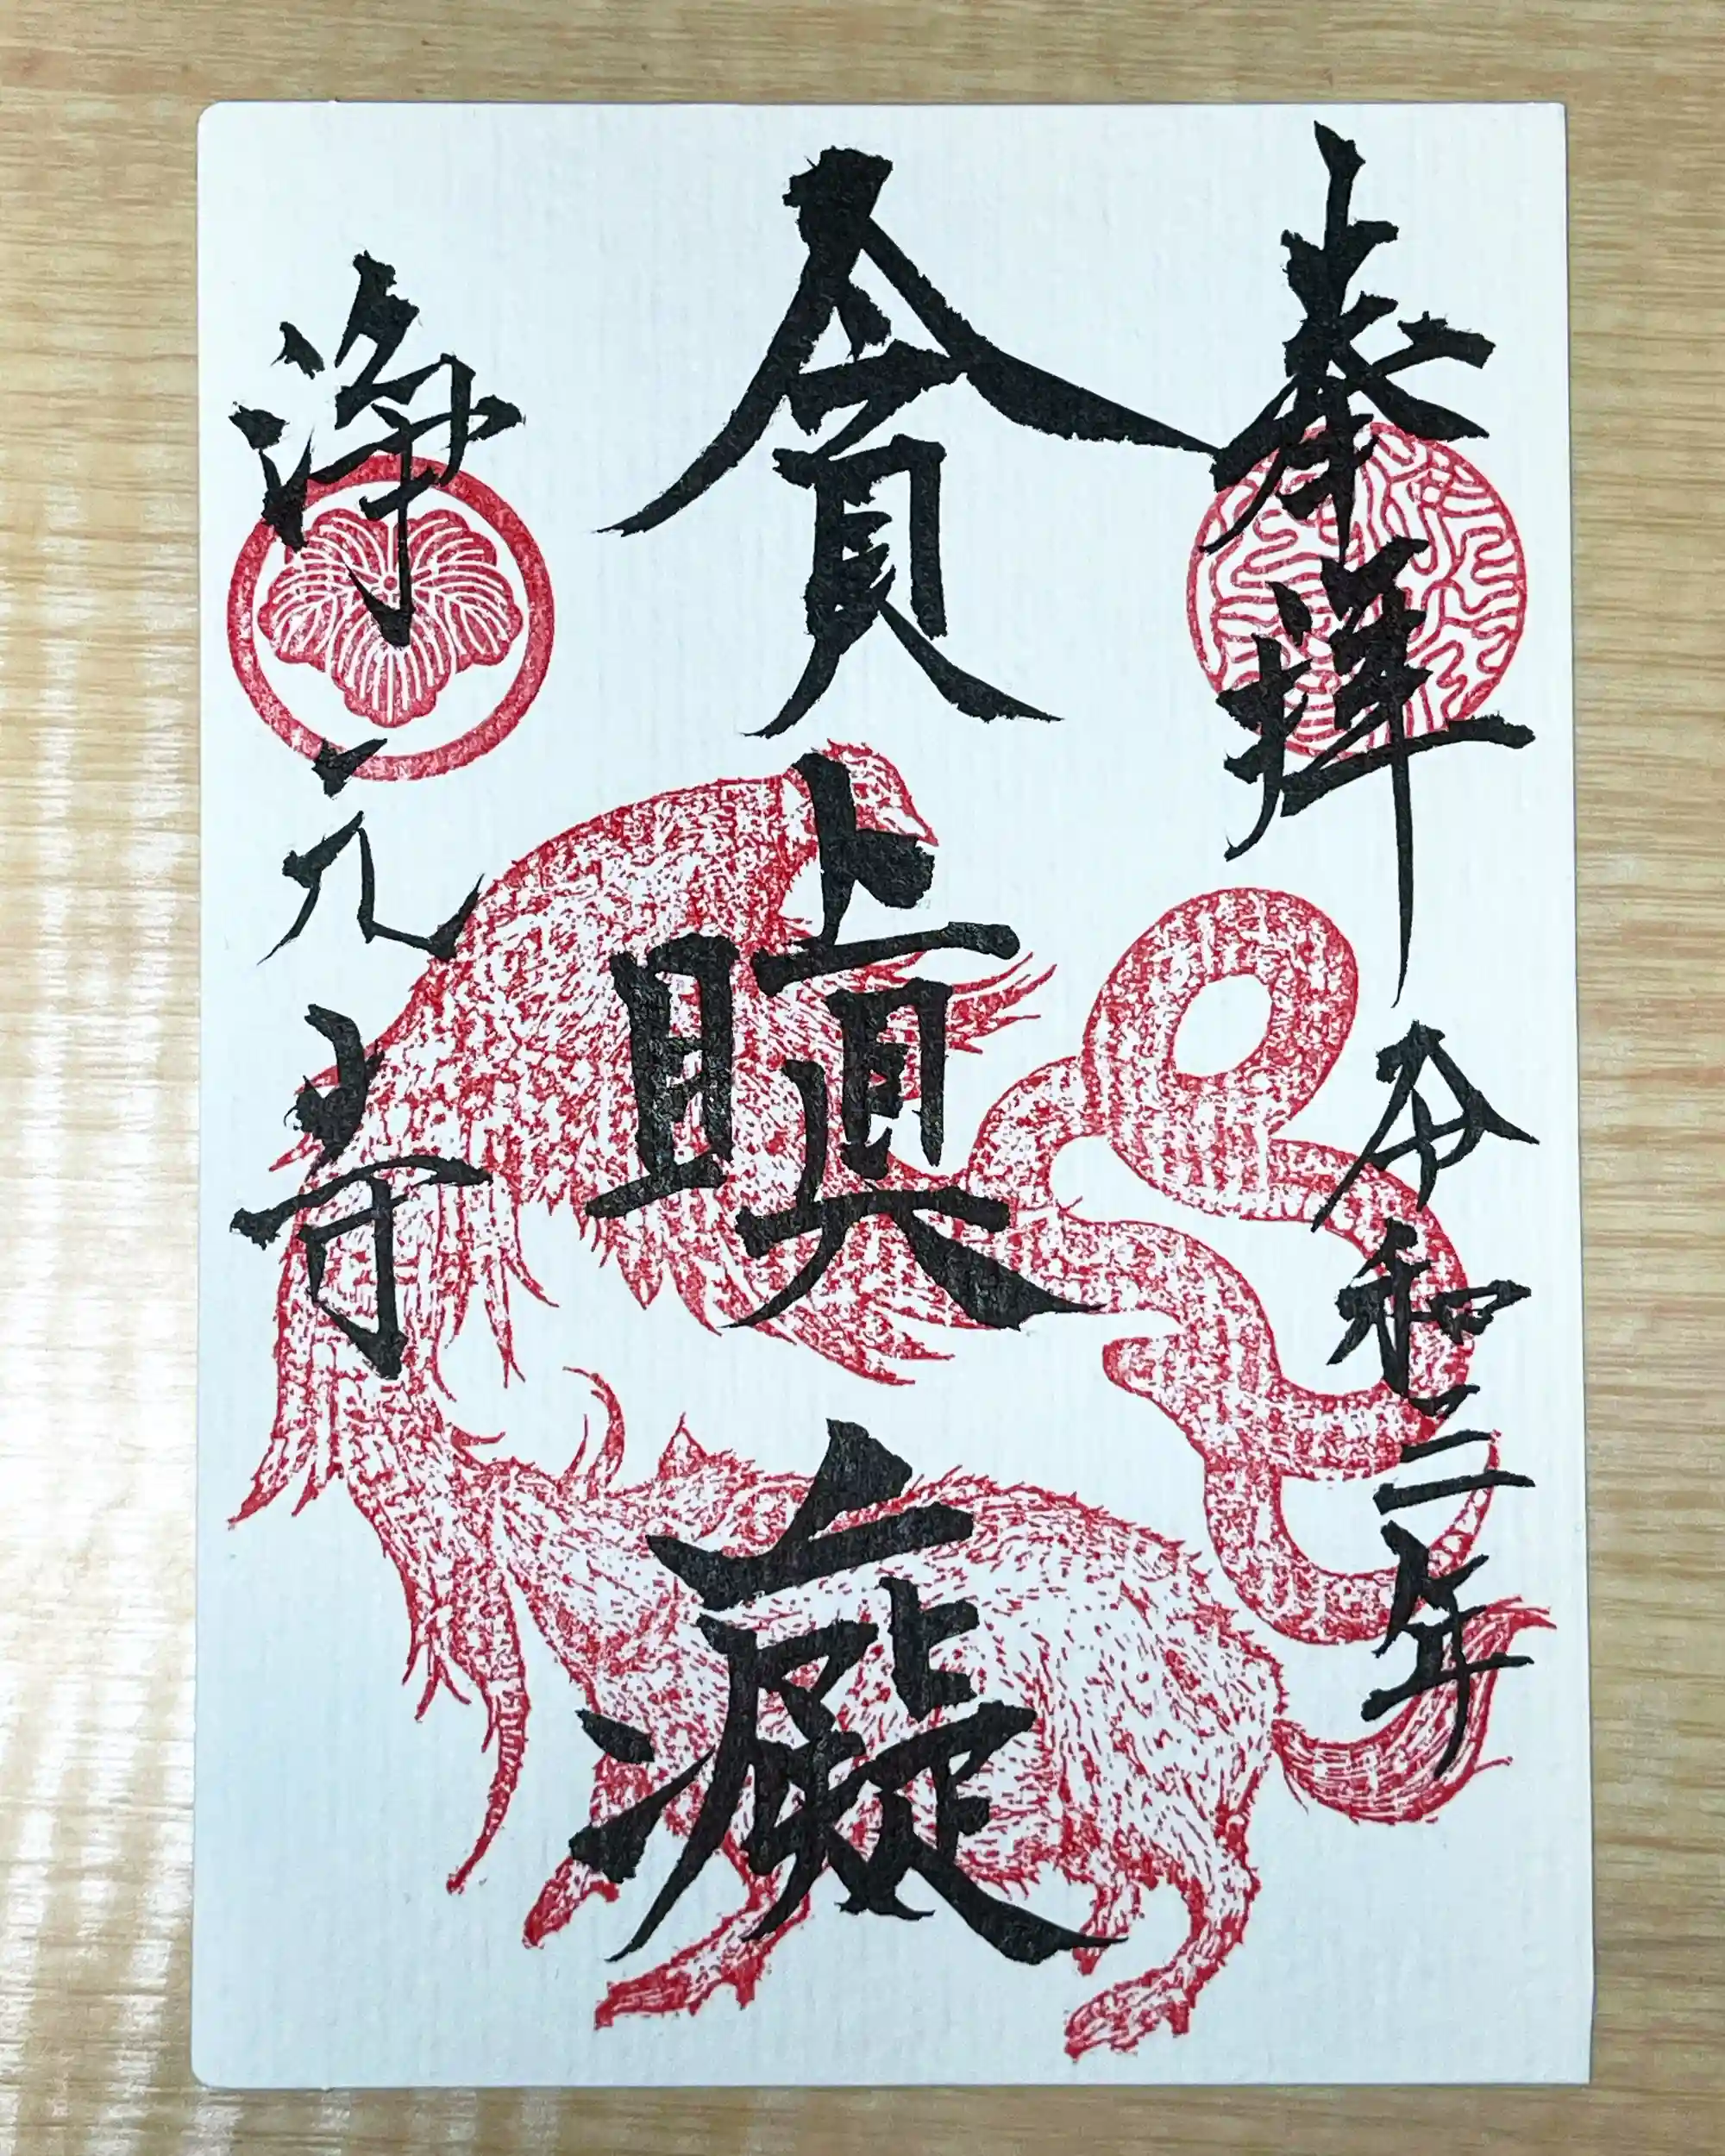 奉拝
令和三年
貪瞋癡
浄元寺